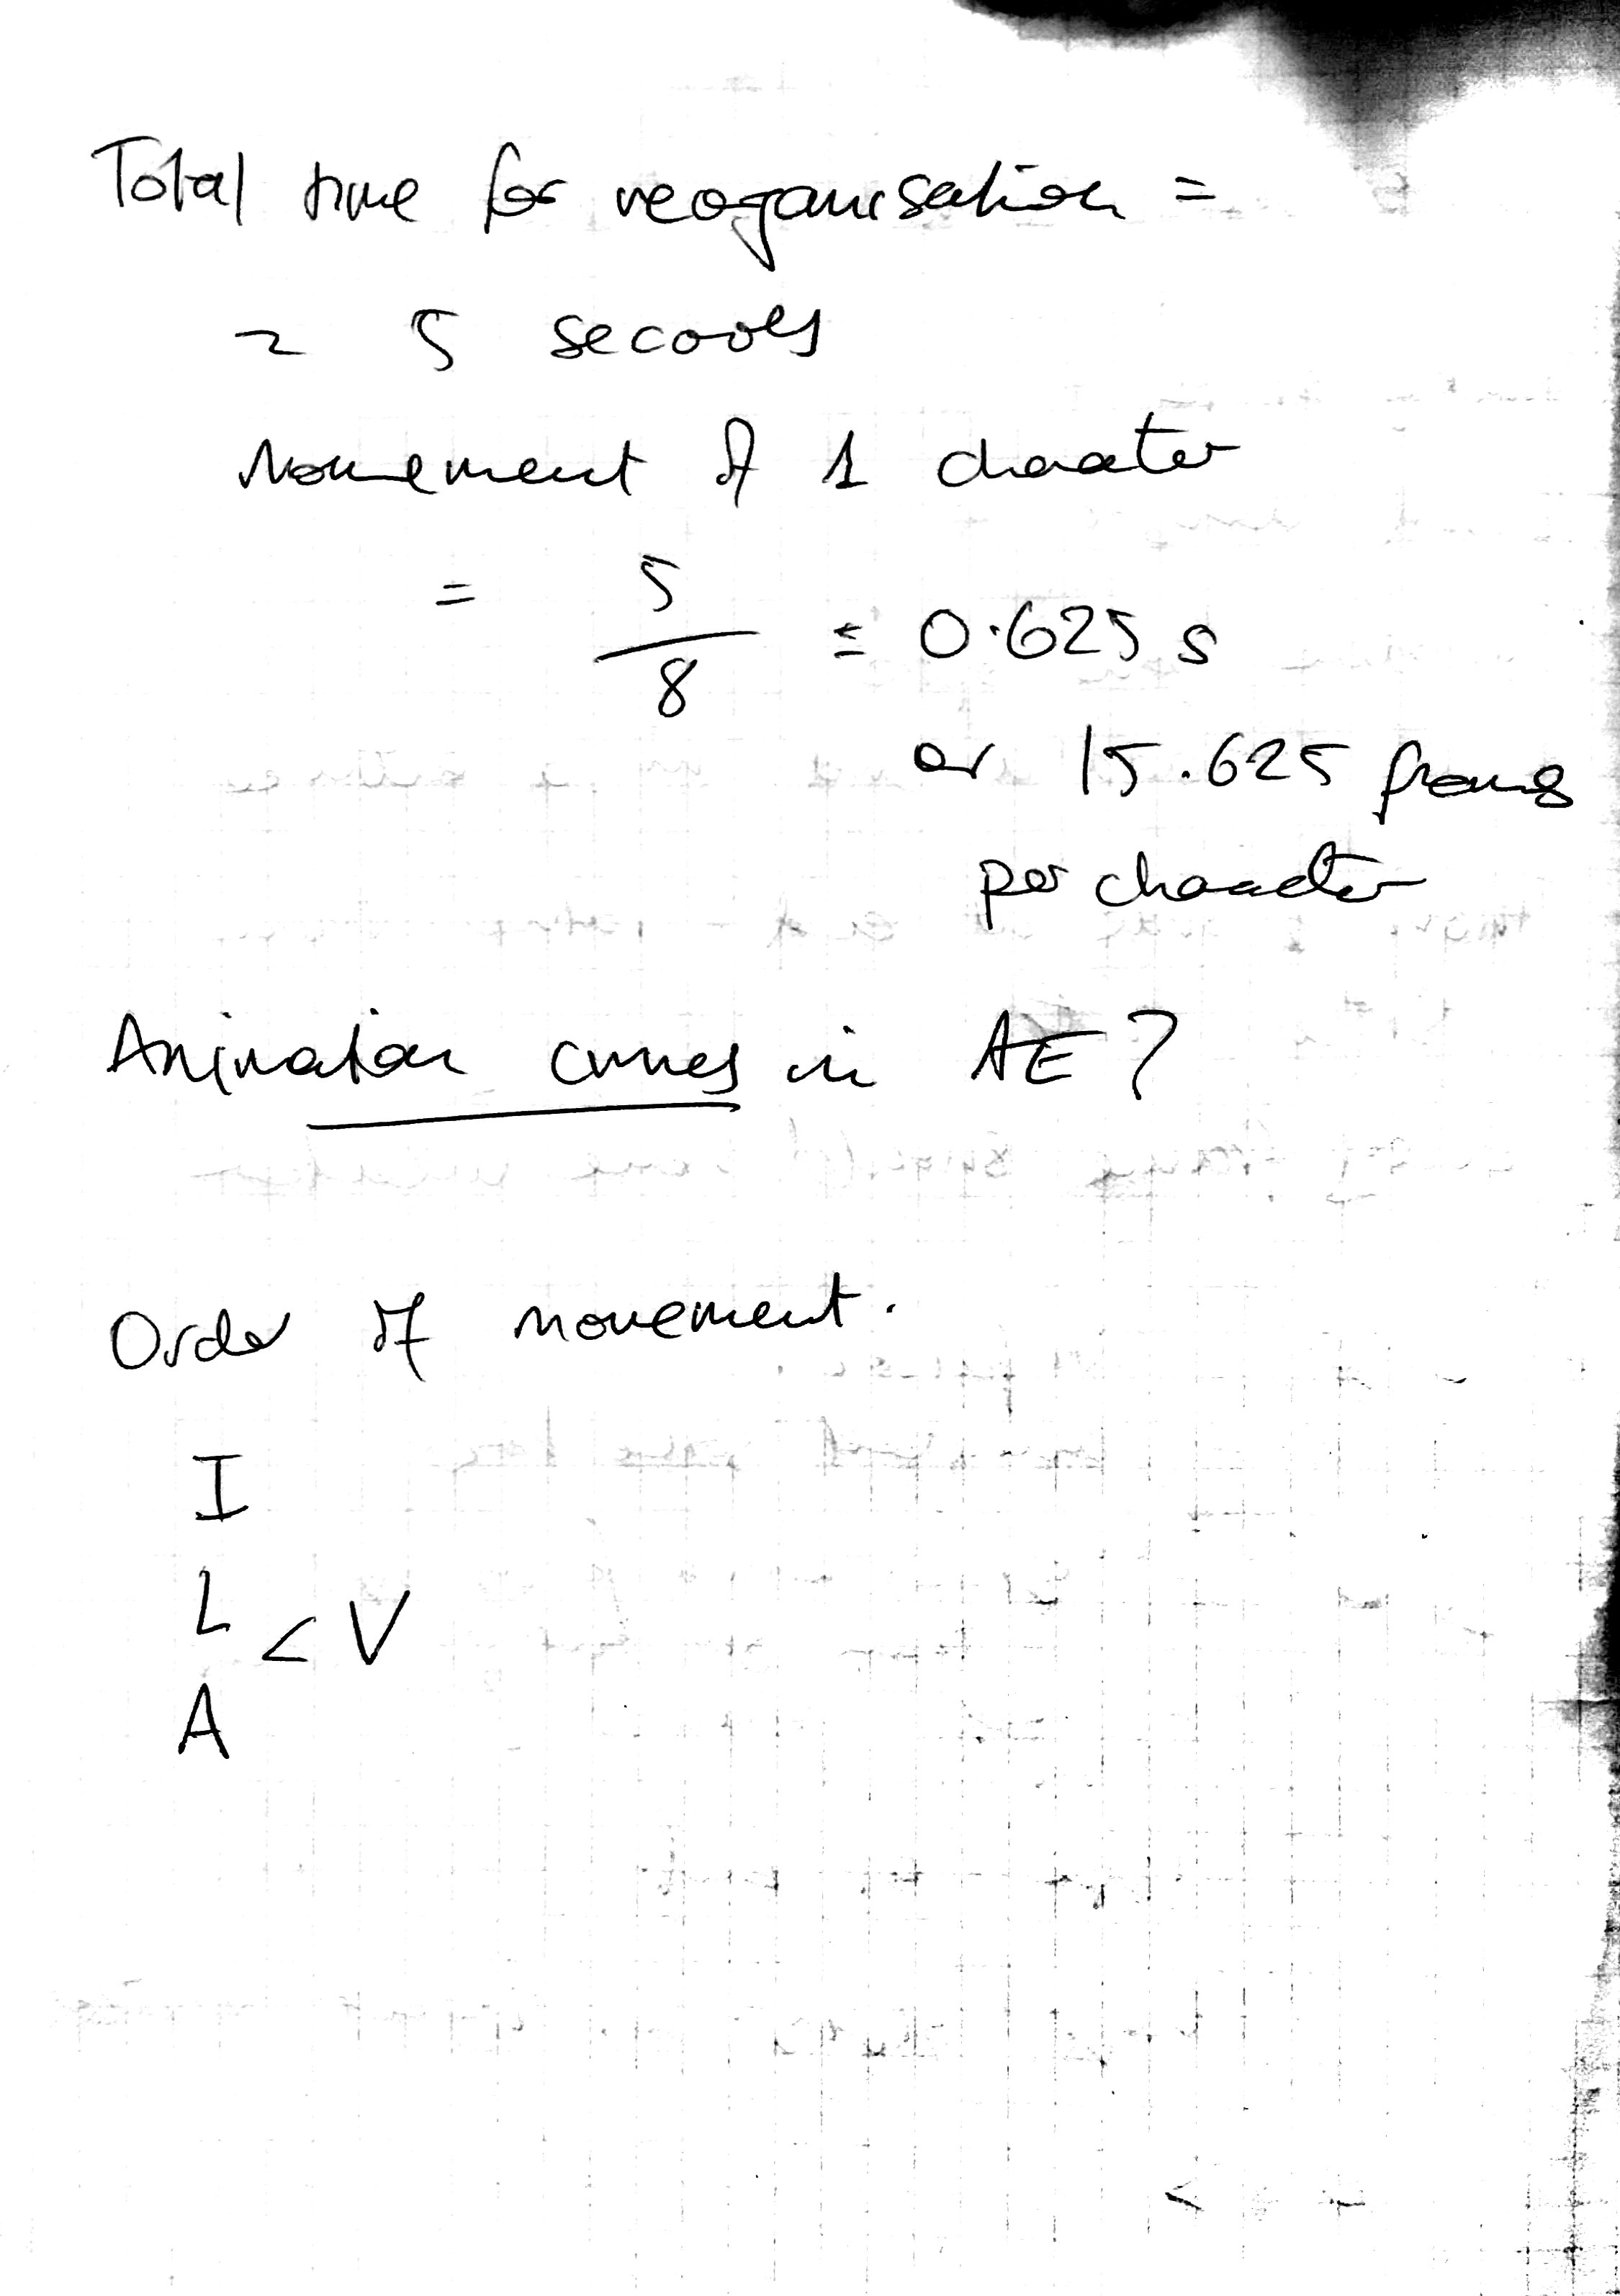 Total time for reorganisation =
≈ 5 seconds
Movement of 1 character
= 5/8 = 0.625 s
or 15.625 frames
per character
Animation curves in AE?
Order of movement.
I
L < V
A